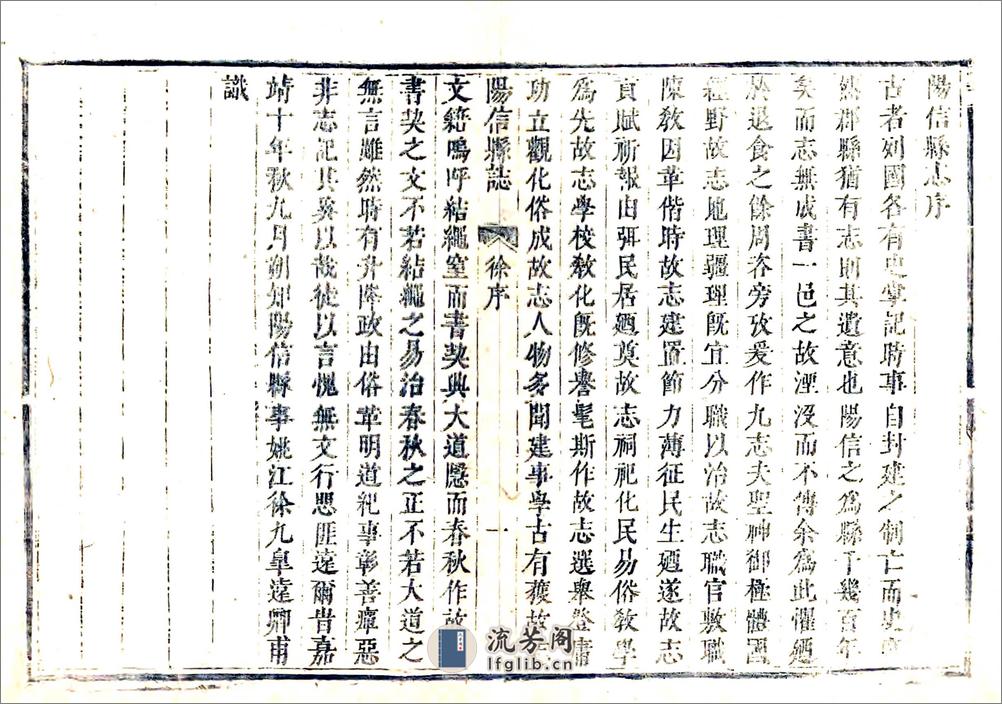 陽信縣志序
古者列國各有史掌記時事自封建之制亡而史
然郡縣猶有志則其遺意也陽信之爲縣于幾百年
矣而志無成書一邑之故湮沒而不傳余爲此懼廼
於退食之餘周咨旁攷爰作九志夫聖神御極體國
經野故志地理疆理既宜分職以治故志職官敷職
陳敎因革偕時故志建置節力薄征民生廼遂故志
貢賦祈報由弭民居廼奠故志祠祀化民易俗敎學
爲先故志學校敎化既修譽髦斯作故志選舉登庸
功立觀化俗成故志人物多聞建事學古有獲故
陽信縣誌 徐序 一
文籍嗚呼結繩窒而書契典大道隱而春秋作故
書契之文不若結繩之易治春秋之正不若大道之
無言雖然時有升降政由俗革明道紀事彰善癉惡
非志記其奚以哉徒以言愧無文行思匪遠爾旹嘉
靖十年秋九月朔知陽信縣事姚江徐九皐遠卿甫
識
流芳阁
lfglib.cn